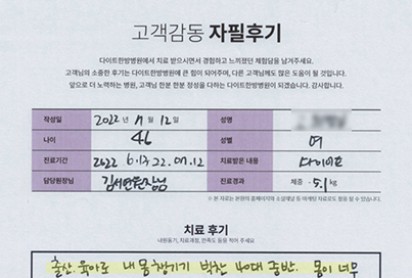 고객감동 자필후기
다이트한방병원에서 치료 받으시면서 경험하고 느끼셨던 체험담을 남겨주세요.
고객님의 소중한 후기는 다이트한방병원에 큰 힘이 되어주며, 다른 고객님께도 많은 도움이 될 것입니다.
앞으로 더 노력하는 병원, 고객님 한분 한분 정성을 다하는 다이트한방병원이 되겠습니다. 감사합니다.
작성일 2022 년 11 월 12 일 성명
나이 46 성별 여
진료기간 2022 6.13 22. 치료받은 내용 다이어트
담당원장님 김서연원장님 진료경과 체중 - 5.1 kg
치료 후기
내원동기, 치료과정, 만족도 등을 적어 주세요
출산. 육아로 내몸챙기기 벅찬 40대 중반. 몸이 너무